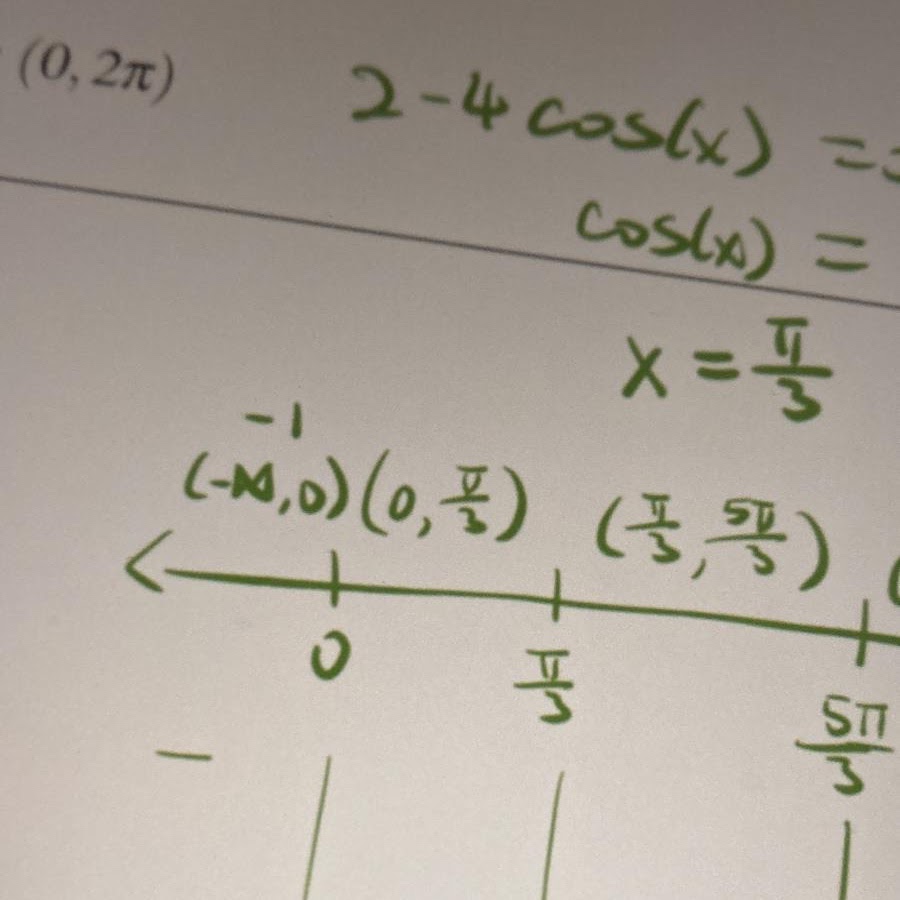 (0, 2π)
2 - 4 cos(x) =
cos(x) =
x = π/3
-1
(-∞, 0) (0, π/3) (π/3, 5π/3) (
0 π/3 5π/3
-